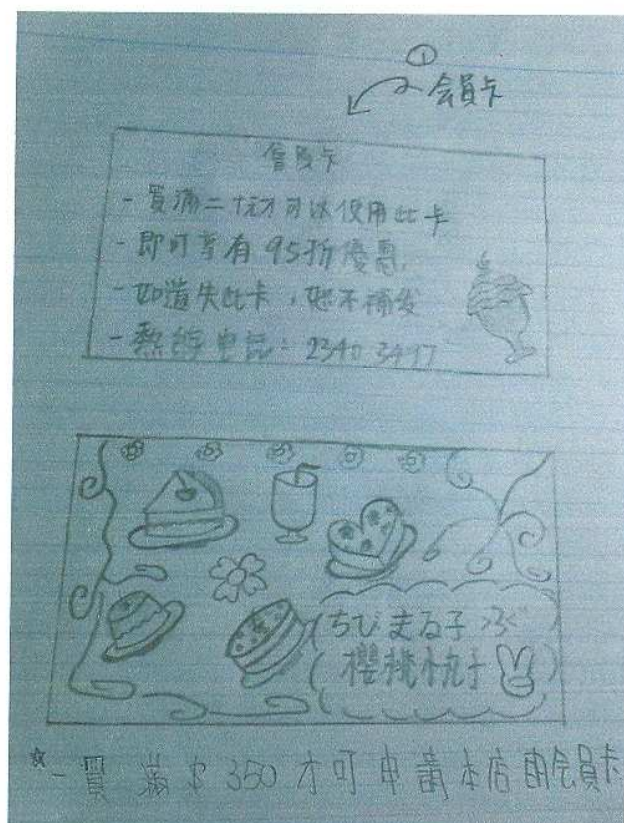 ①
会員卡
會員卡
- 買滿二十元才可以使用此卡
- 即可享有95折優惠
- 如遺失此卡，恕不補发
- 熱線电話：2340 3497
ちびまる子
櫻桃桃子
* - 買滿 $ 350 才可申請本店的会員卡